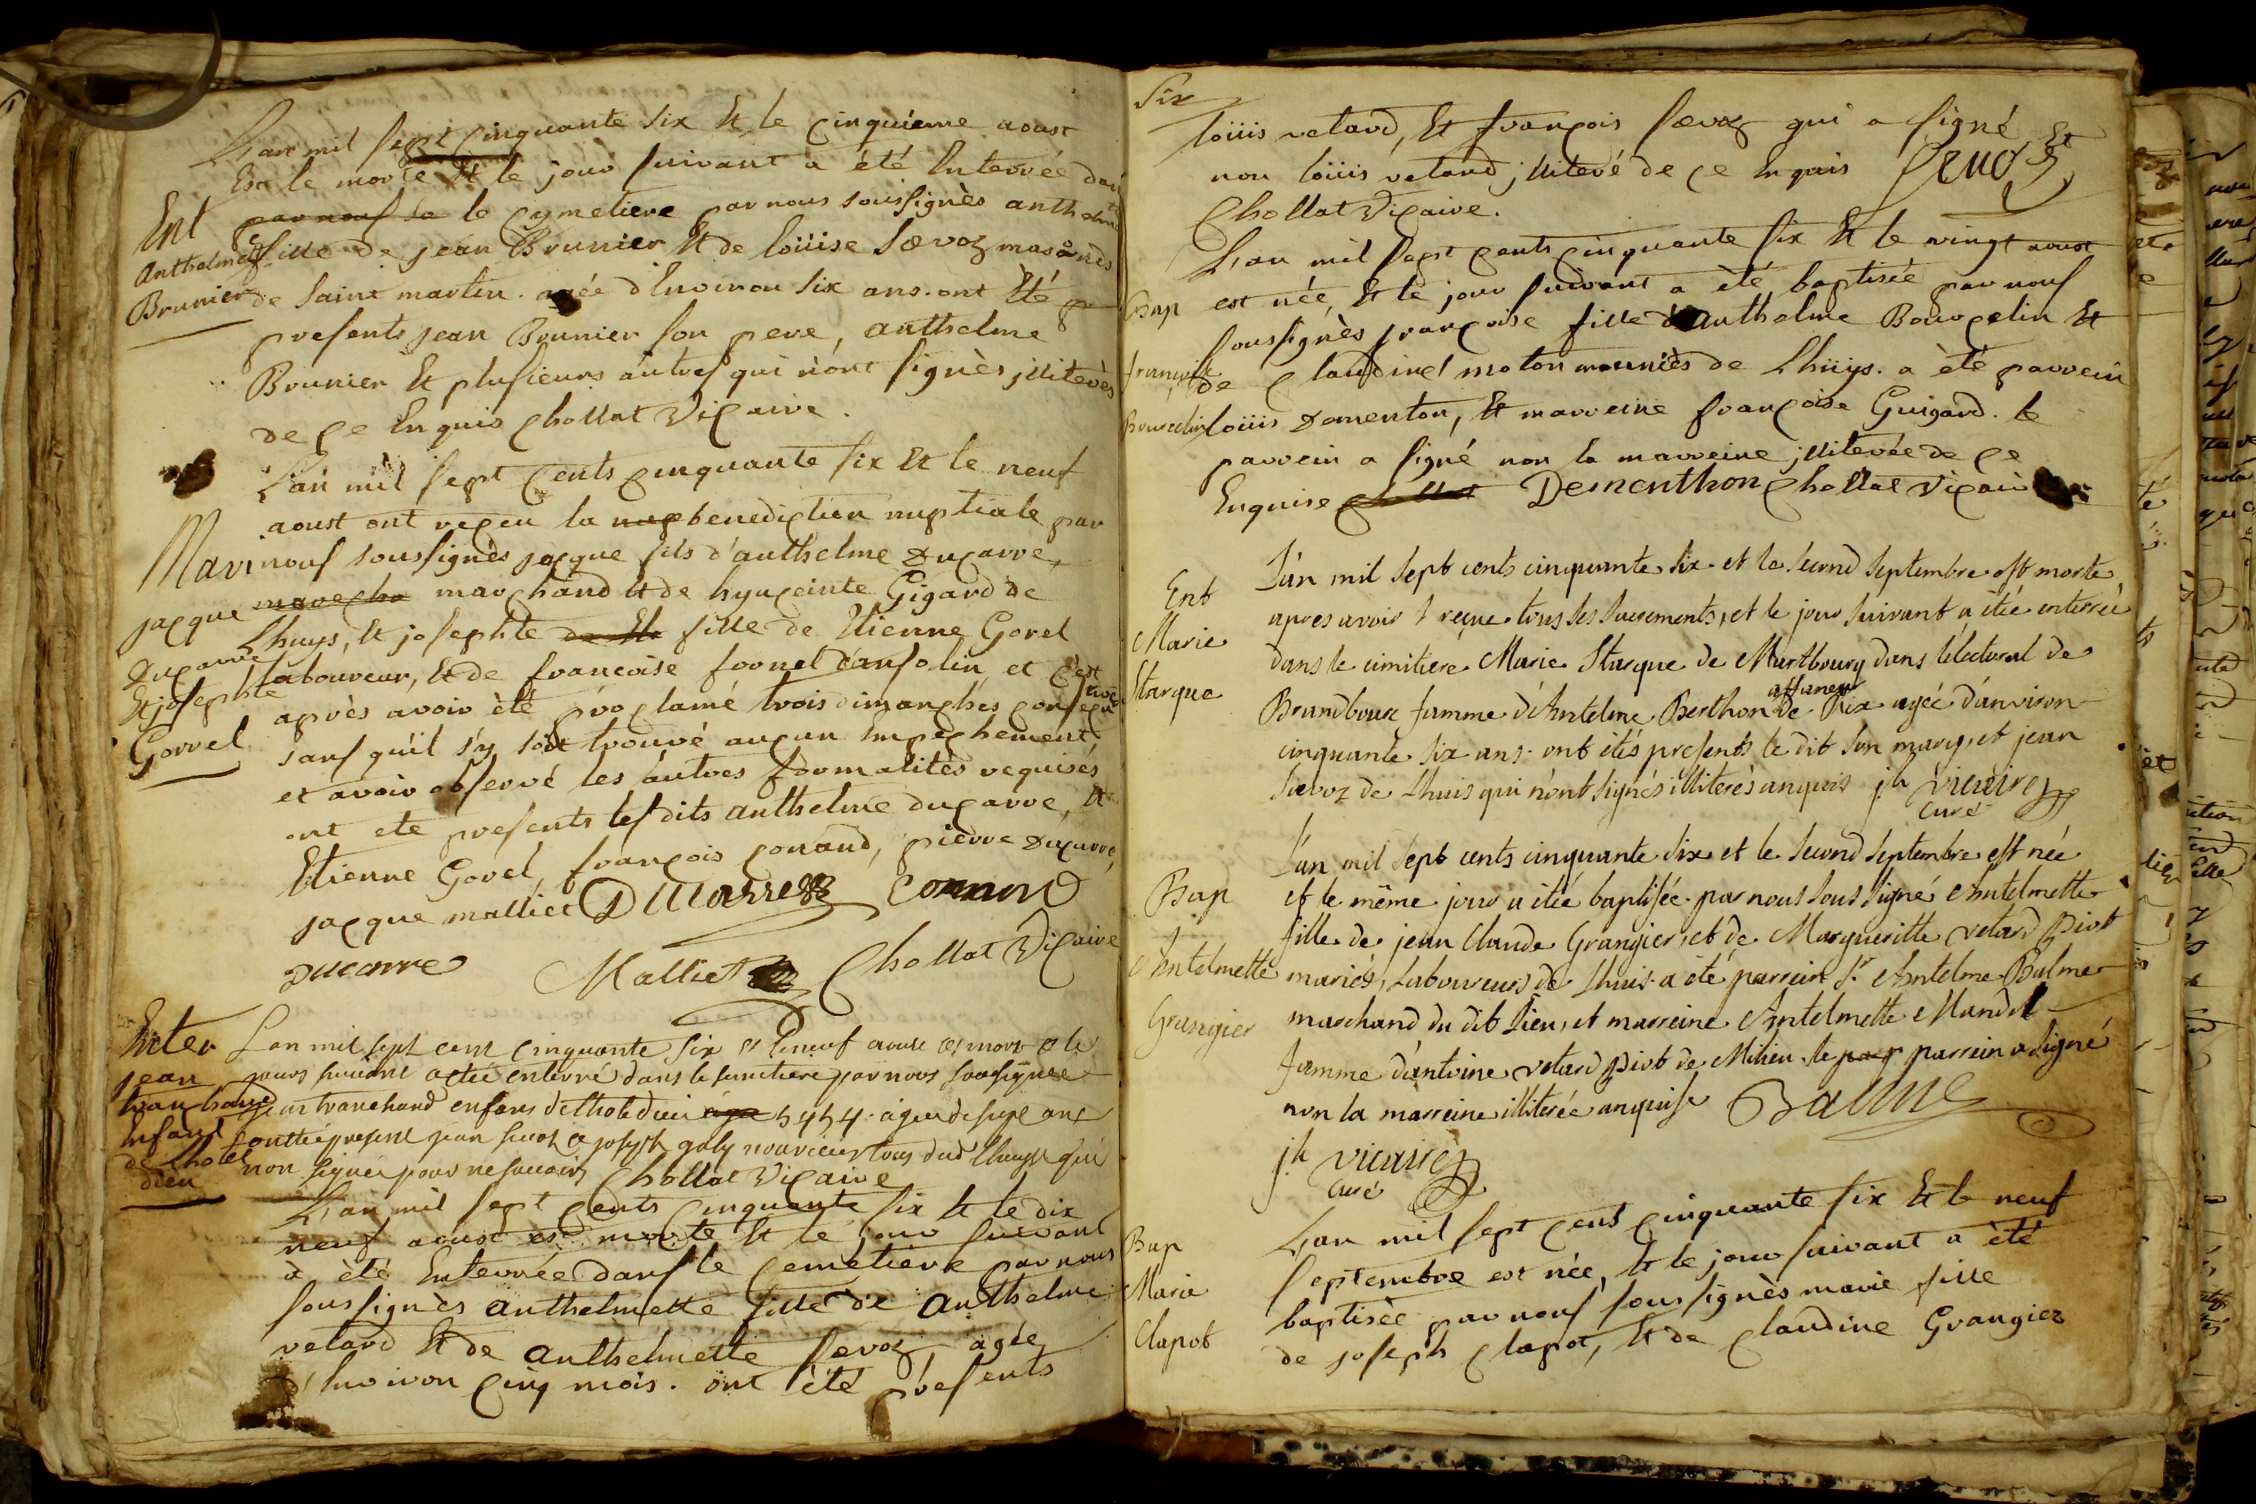 L'an mil sept cinquante six Et le cinquieme aoust
Est le morte Et le jour suivant a été Enterrée dans
Ent
par nous so le cymetiere par nous soussignès anthelmette
Anthelmette fille de jean Brunier Et de loüise Sævoz mariés
Brunier de Saint martin. agée d'Environ six ans. ont Eté
presents jean Brunier son pere, anthelme
Brunier Et plusieurs autres qui n'ont signès jlliterès
de ce Enquis Chollat Vicaire.
L'an mil sept cents cinquante six Et le neuf
aoust ont reçeu la nup benediction nuptiale par
Mari nous soussignès jacque fils d'anthelme Ducarre,
jacque marecha marchand Et de hyacinte Gigard de
Lhuys, Et josephte de Et fille de Etienne Gorel
Ducarre
laboureur, Et de francoise fornel d'ansolin, et c'est
Et josephte
après avoir été proclamé trois dimanches consecutive
Gorrel
sans qu'il s'y soit trouvé aucun Empechement
et avoir observé les autres formalitès requises
ont ete presents lesdits anthelme ducarre, Et
Etienne Gorel, françois conand, pierre Ducarre,
jacque malliet Ducarre Connand
Ducarre Malliet Chollat Vicaire
Enter L'an mil sept cent cinquante six et le neuf aoust est mort et le
jean jours suivant a etée enterré dans le simetiere par nous sousignée
tranchand jean tranchand enfans de lhotedieu aga 5454. agee de sept ans
Enfant ont été present jean sevoz et joseph galy nouricier tous dud Lhuys qui
de Lhotel non signée pour ne sçavoir Chollat Vicaire
dieu
L'an mil sept cents cinquante six Et le dix
neuf aoust est morte Et le jour suivant
a été Enterrée dans le cemetiere par nous
soussignès anthelmette fille de anthelme
vetard Et de anthelmette Sævoz, agée
d'Environ cinq mois. ont été presents
Six
loüis vetard, Et françois Sævoz qui a signé Et
non loüis vetard jlliteré de ce Enquis Sevoz
Chollat Vicaire.
L'an mil sept cents cinquante six Et le vingt aoust
Bap est née, Et le jour suivant a été baptisée par nous
soussignès françoise fille d'anthelme Bourcelin Et
françoise de Claudine moton mariès de Lhüys. a été parrein
Bourcelin loüis Domenton, Et marreine françoise Guigard. le
parrein a signé non la marreine jlliterée de ce
Enquise Chollat Dementhon Chollat Vicair
L'an mil sept cents cinquante six et le second septembre est morte,
Ent
apres avoir reçue tous les sacrements, et le jour suivant a étée enterrée
Marie
dans le cimitiere Marie Starque de Martbourg dans lelectorat de
Starque
affaneur
Brandbourc famme d'Antelme Berthon de Rix agée d'anviron
cinquante six ans. ont étés presents le dit son mary, et jean
Sævoz de Lhuis qui n'ont signés illiterés anquis jh vicaire
curé
L'an mil sept cents cinquante six et le second septembre est née
Bap
et le même jour a étée baptisée par nous sous signé Antelmette
fille de jean Claude Grangier, et de Margueritte vetard Piot
Antelmette mariés, Laboureurs de Lhuis. a été parrein Sr Antelme Balme
Grangier
marchand du dit Lieu, et marreine Antelmette Mandot
famme d'antoine vetard Piot de Milieu. le par parrein a signé
non la marreine illiterée anquise Balme
jh vicaire
curé
L'an mil sept cens cinquante six Et le neuf
Bap
septembre est née, Et le jour suivant a été
Marie
baptisée par nous soussignès marie fille
Clapot
de joseph Clapot, Et de Claudine Grangier